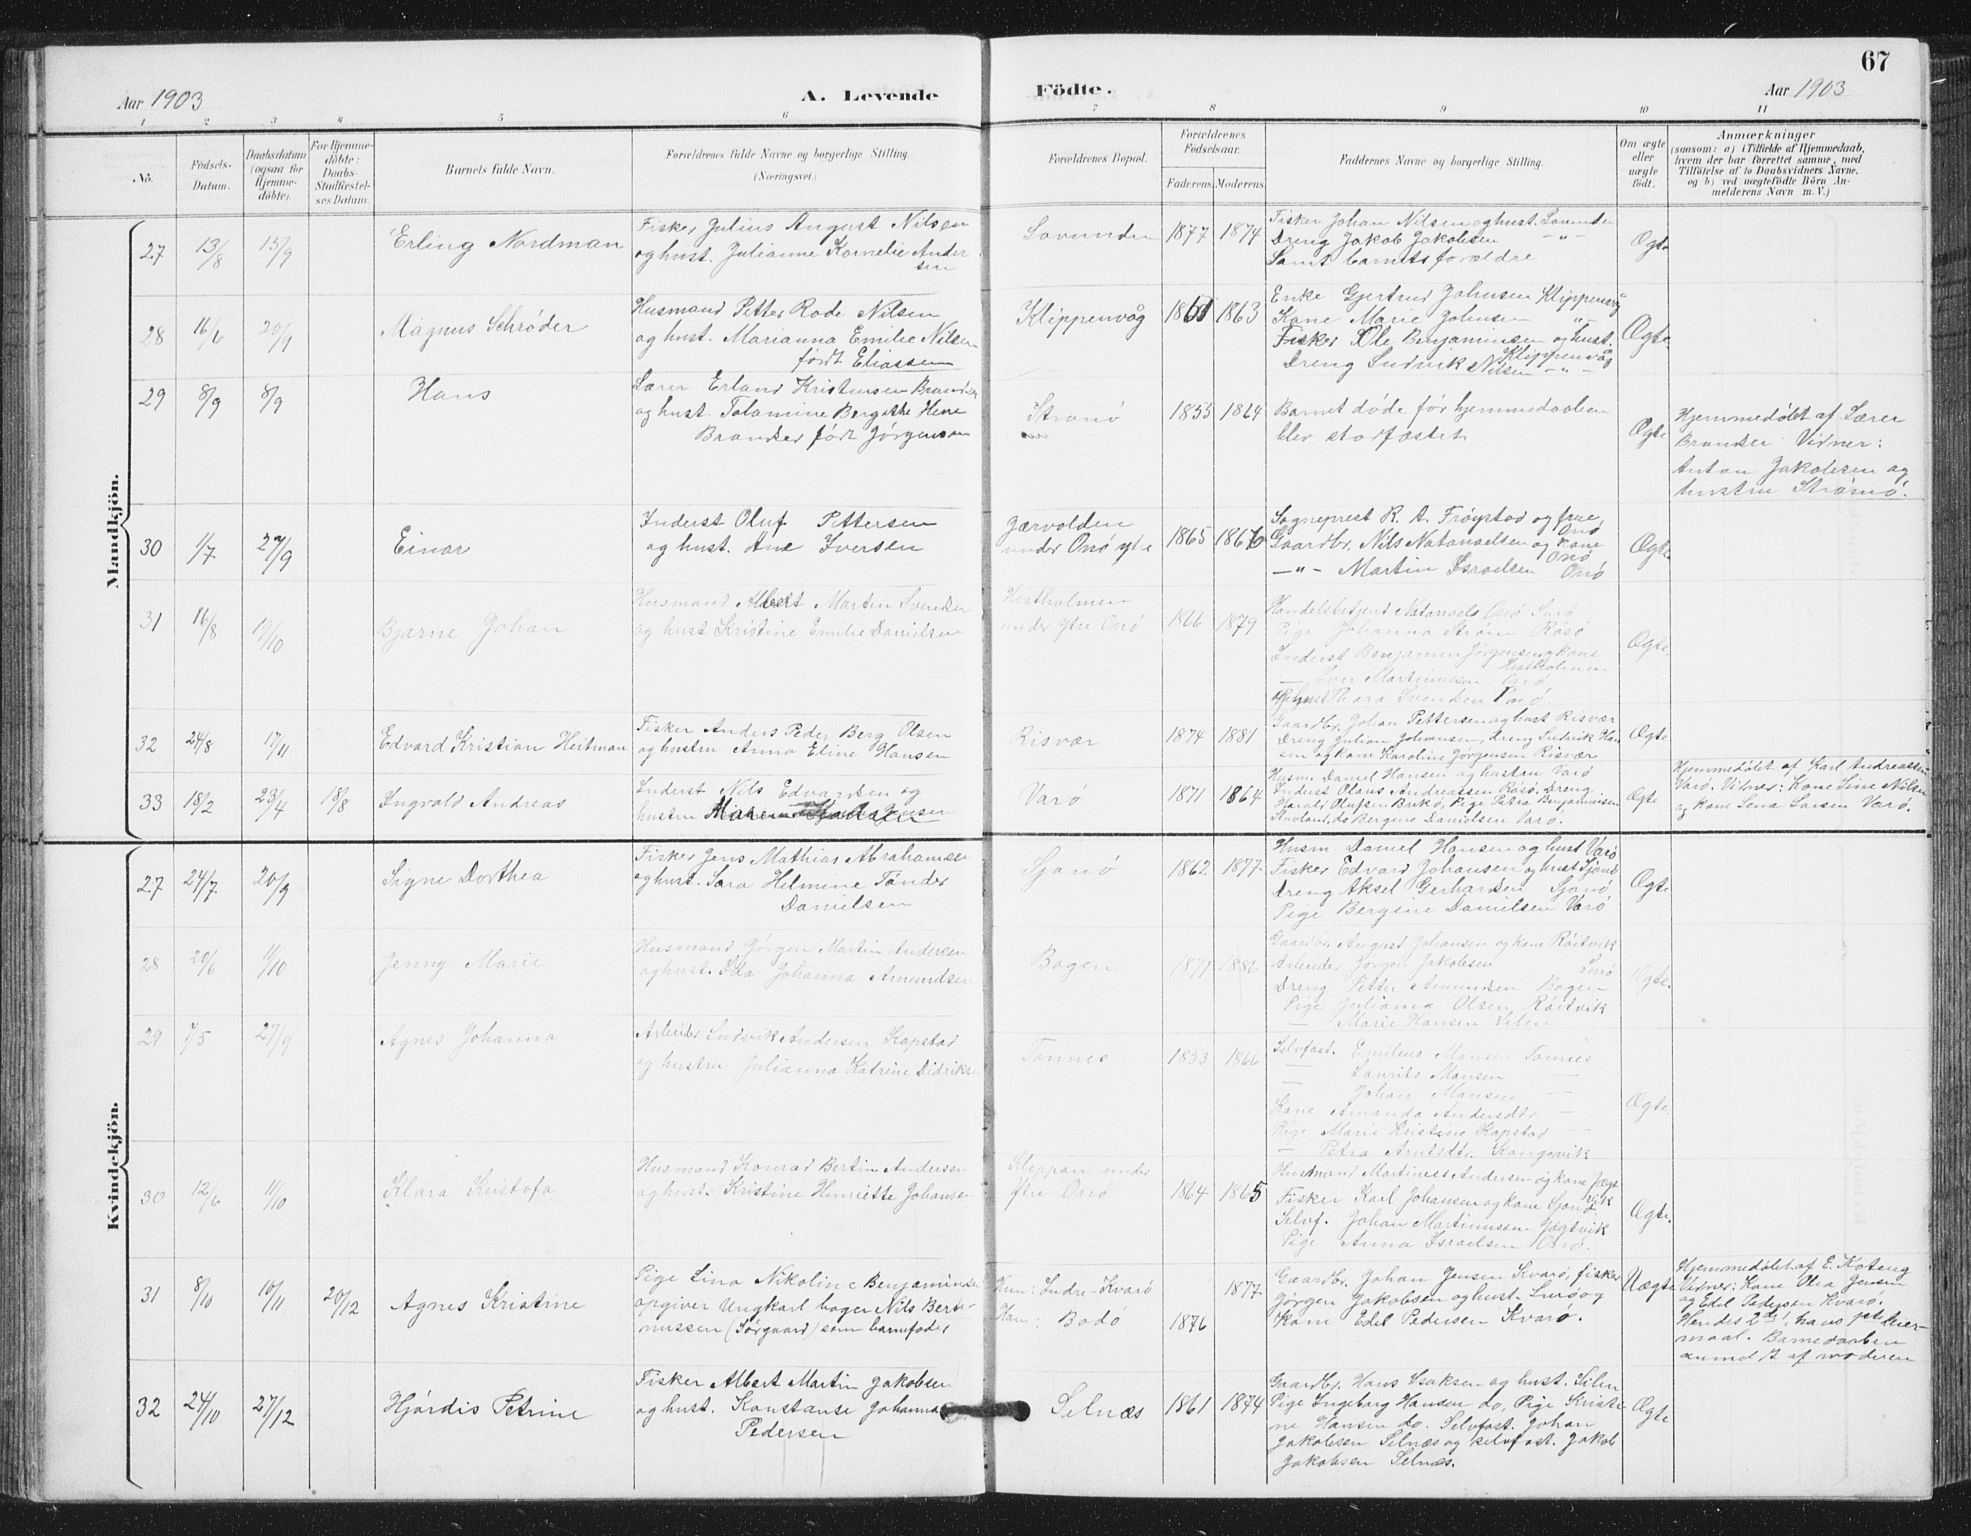 67
Aar 1903
A. Levende
Födte.
Aar 1903
1 2 3 4 5 6 7 8 9 10 11
No.
Födsels-
Datum.
Daabsdatum
(ogsaa for
Hjemme-
döbte).
For Hjemme-
döbte:
Daabs-
Stadfæstel-
ses Datum.
Barnets fulde Navn.
Forældrenes fulde Navne og borgerlige Stilling
(Næringsvei.)
Forældrenes Bopæl.
Forældrenes
Födselsaar.
Faderens. Moderens.
Faddernes Navne og borgerlige Stilling.
Om ægte
eller
uægte
födt.
Anmærkninger
(saasom: a) i Tilfælde af Hjemmedaab,
hvem der har forrettet samme, med
Tilföielse af to Daabsvidners Navne,
og b) ved uægtefödte Börn An-
melderens Navn m. V.)
Mandkjön.
27 13/8 15/9 Erling Nordman
Fisker Julius August Nilsen
og hust. Julianne Kornelie Ander
sen
Lovunden 1877 1874
Fisker Johan Nilsen og hust. Lovunden
Dreng Jakob Jakobsen — „ —
Samt barnets forældre
Ægte
28 16/6 20/9 Magnus Schrøder
Husmand Petter Rode Nilsen
og hust. Marianna Emilie Nilsen
født Eliassen
Klippenvåg 1863
Enke Gjertrud Johnsen Klippenvåg
Kone Marie Johnsen — „ —
Fisker Ole Benjaminsen og hust.
Klippenvåg
Dreng Ludvik Nilsen — „ —
Ægte
29 8/9 8/9 Hans
Lærer Erland Kristensen
og hust.
født Jørgensen
1864
Barnet døde før hjemmedaaben
blev stadfæstet
Ægte
Hjemmedøbt af Lærer
Vidner:
Anton Jakobsen og
hustru
30 1/7 27/9 Einar
Inderst Oluf Pettersen
og hust. Ane Iversen
under Onø ytre 1865
Sogneprest R. A. Frøystad og frue
Onø
Gaardbr. Nils Natanaelsen og kone
Onø
— „ — Martin Israelsen Onø
Ægte
31 16/8 11/10 Bjarne Johan
Husmand Albert Martin Svendsen
og hust. Kristine Emilie Danielsen
Hestholmen
under Ytre Onø 1879
Pige Johanna Strøm
Inderst Benjamin Jørgensen og kone
Hestholmen
— Iver Martinussen Onø
Ægte.
32 24/8 17/11 Edvard Kristian Heitman
Fisker Anders Peder Berg Olsen
og hustru Anna Eline Hansen
Risvær 1874 1881
Gaardbr. Johan Pettersen og hust Risvær
Dreng Julian Johansen, Dreng Ludvik Han
sen og kone Karoline Jørgensen Risvær
Ægte
33 18/2 23/4 18/8 Ingvald Andreas
Inderst Nils Edvardsen og
hustru
Varø 1871 1864
Husm. Daniel Hansen og hustru Varø
Inderst Olaus Andreassen Røsø. Dreng
Harald Olufsen Pige Petra Benjaminsen
do Bergine Danielsen Varø.
Ægte
Hjemmedøbt af Karl Andreassen
Varø. Vidner: Kone Line Nilsen
og kone Lena Larsen Varø.
Kvindekjön.
27 24/7 20/9 Signe Dorthea
Fisker Jens Mathias Abrahamsen
og hust. Sara Helmine Tønder
Danielsen
Sjonø 1862 1877
Husm. Daniel Hansen og hust Varø
Fisker Edvard Johansen og hust Sjonø
Dreng Aksel Gerhardsen Sjonø
Pige Bergine Danielsen Varø
Ægte
28 20/6 11/10 Jenny Marie
Husmand Jørgen Martin Andersen
og hust. Ida Johanna Amundsen
Bogen 1871
Gaardbr. August Johansen og kone Røitvik
Arbeider Jørgen Jakobsen
Dreng Petter Amundsen Bogen
Pige Julianna Olsen Røitvik
— Marie Hansen Silen
Ægte.
29 7/5 27/9 Agnes Johanna
Arbeider Ludvik Andersen Kopstad
og hustru Julianna Katrine Didriksen
Tonnes 1853 1866
Selvfost. Emilius Monsen Tonnes
— Laurits Monsen —
— Johan Monsen —
Kone Amanda Andersdtr —
Pige Marie Kristine Kopstad —
— Petra Kongsvik
Ægte
30 12/6 11/10 Klara Kristofa
Husmand Konrad Bertin Andersen
og hust. Kristine Henriette Johansen
under
Ytre Onø 1864 1865
Husmand Martines Andersen og kone Jægt
vik
Fisker Karl Johansen og kone Sjonø
Selvf. Johan Martinussen Jægtvik
Pige Anna Israelsen Onø.
Ægte.
31 8/10 10/11 20/12 Agnes Kristine
Pige Lina Nikoline Benjaminsen
opgiver Ungkarl bager Nils
som barnefader
Hun: Indre-Kvarø 1877
Han: Bodø 1876
Gaardbr. Johan Jensen Kvarø, fisker
Jørgen Jakobsen og hust. Lurø og
kone Edel Pedersen Kvarø.
Uægte
Hjemmedøbt af E. Koteng
Vidner: Kone Olia Jensen
og Edel Pedersen Kvarø.
Hendes 2det, hans 1ste leier-
maal. Barnedaaben
anmeldt af moderen
32 24/10 27/12 Hjørdis Petrine
Fisker Albert Martin Jakobsen
og hust. Konstanse Johanna
Pedersen
Selnæs 1861 1874
Gaardbr. Hans Isaksen og hust. Silen
Pige Ingeborg Hansen do, Pige Kristi
ne Hansen do. Selvfost. Johan
Jakobsen Selnæs og selvfost. Jakob
Jakobsen Selnæs.
Ægte